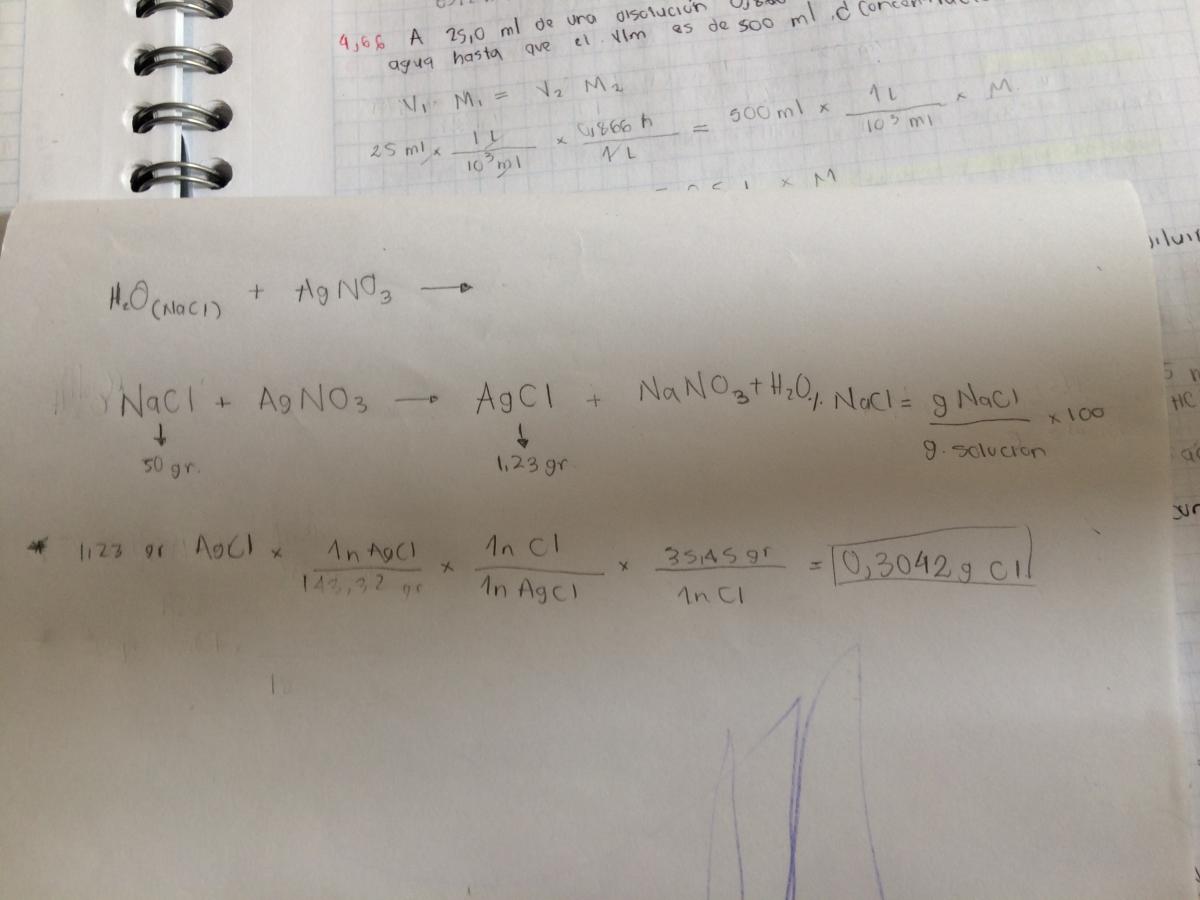 4,66 A 25,0 ml de una disolución
agua hasta que el Vlm es de 500 ml
V₁ M₁ = V₂ M₂
25 ml × 1L / 10³ ml × 0,866 n / 1L = 500 ml × 1L / 10³ ml × M
× M
H₂O (NaCl) + AgNO₃ →
NaCl + AgNO₃ → AgCl + NaNO₃ + H₂O % NaCl = g NaCl / g. solución × 100
↓ 50 gr. ↓ 1,23 gr
* 1,23 gr AgCl × 1n AgCl / 143,32 gr × 1n Cl / 1n AgCl × 35,45 gr / 1n Cl = 0,3042 g Cl